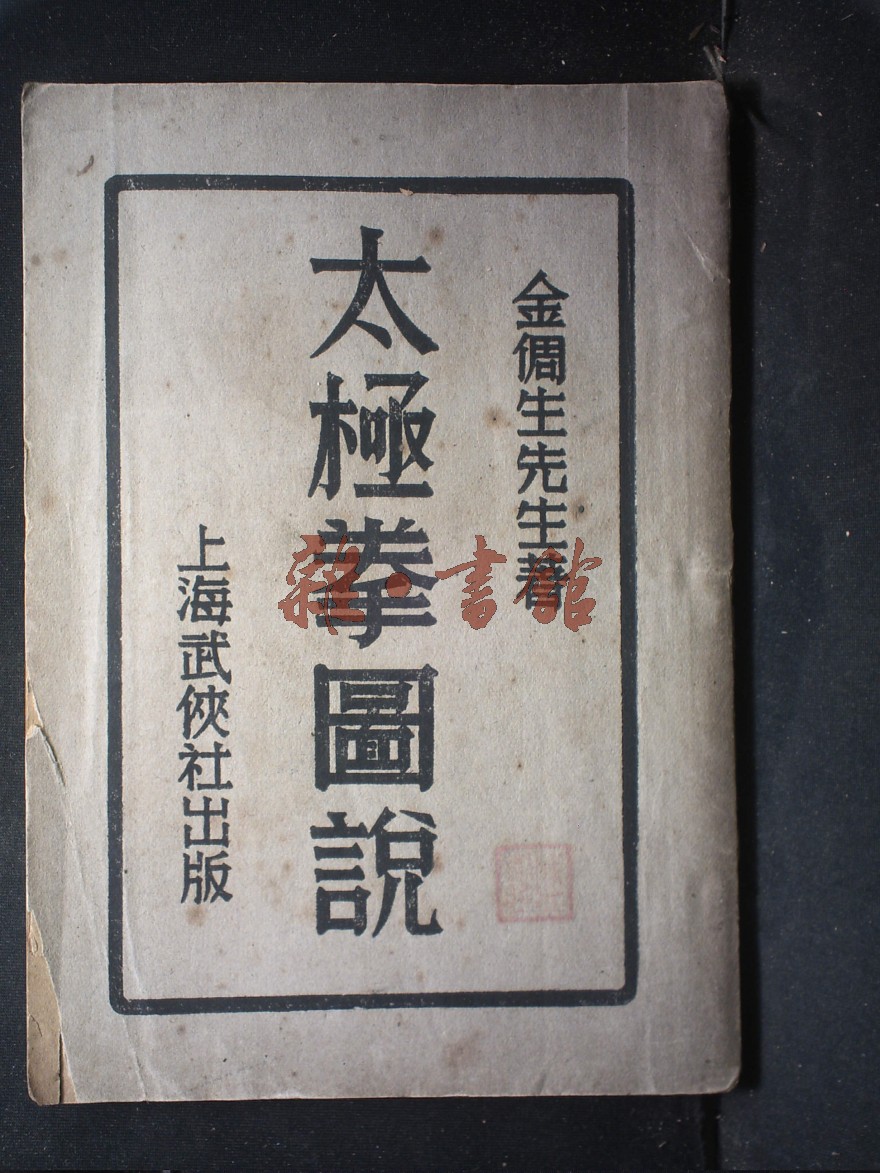 金倜生先生著
太極拳圖說
上海武俠社出版
雜·書館